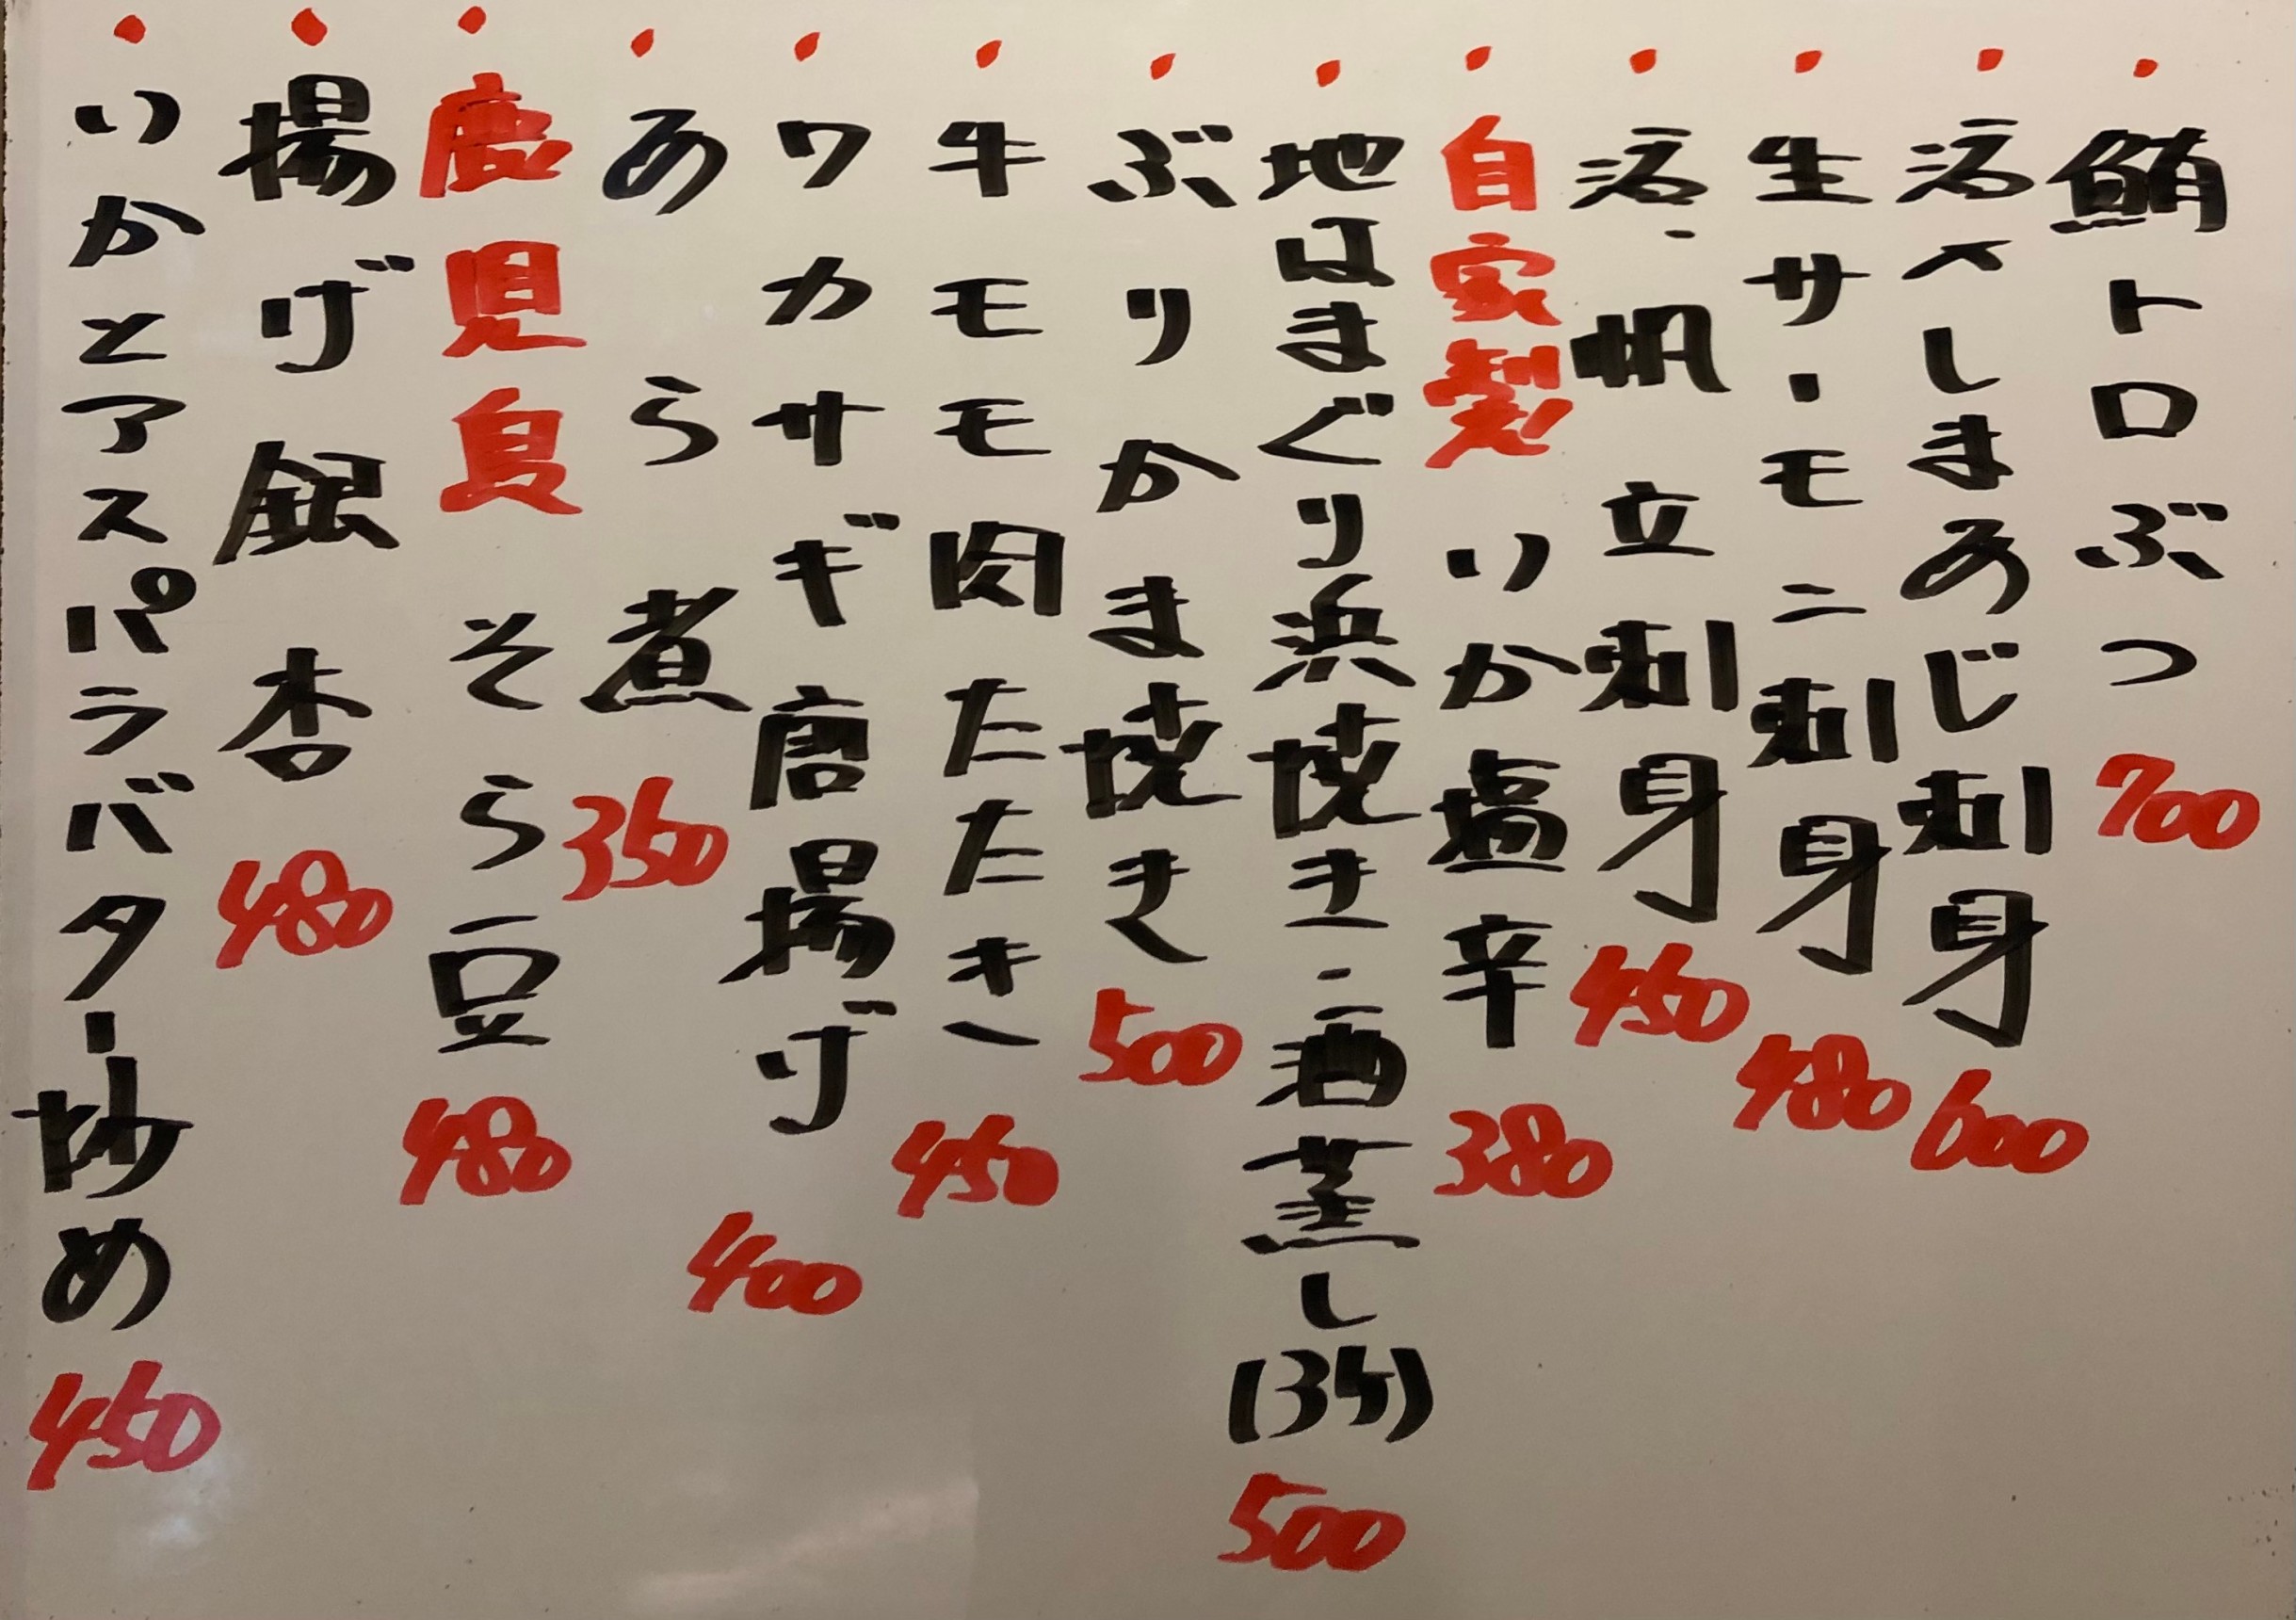 ・鮪トロぶつ 700
・活〆しまあじ刺身 600
・生サーモン刺身 480
・活・帆立刺身 450
・自家製いか塩辛 380
・地はまぐり浜焼き・酒蒸し(3ケ) 500
・ぶりかま焼き 500
・牛モモ肉たたき 450
・ワカサギ唐揚げ 400
・あら煮 350
・鹿児島そら豆 480
・揚げ銀杏 480
・いかとアスパラバター炒め 450